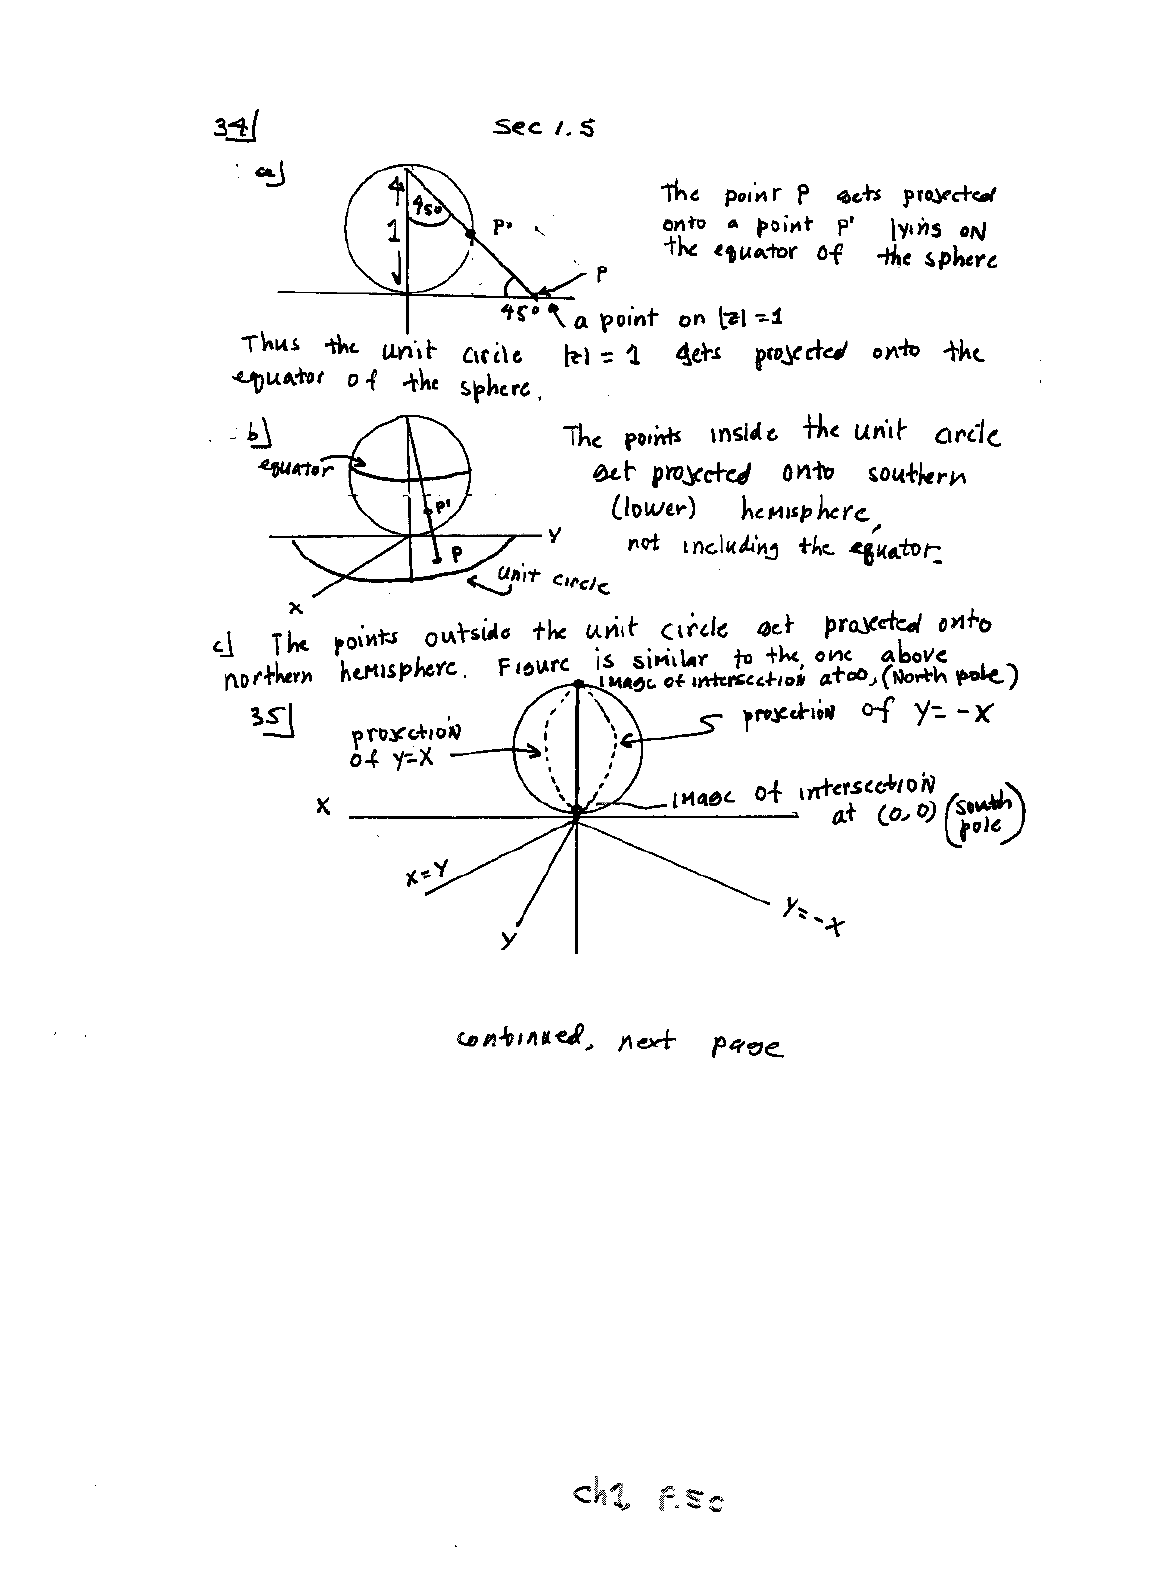 34| Sec 1.5
a]
45°
1
P'
P
45°
a point on |z| = 1
The point P gets projected
onto a point P' lying on
the equator of the sphere
Thus the unit circle |z| = 1 gets projected onto the
equator of the sphere.
b]
equator
P'
Y
P
unit circle
X
The points inside the unit circle
get projected onto southern
(lower) hemisphere,
not including the equator.
c] The points outside the unit circle get projected onto
northern hemisphere. Figure is similar to the one above
image of intersection at ∞, (North pole)
35|
projection
of Y=X
projection of Y = -X
image of intersection
at (0,0) (South
pole)
X
X=Y
Y
Y=-X
continued, next page
ch1